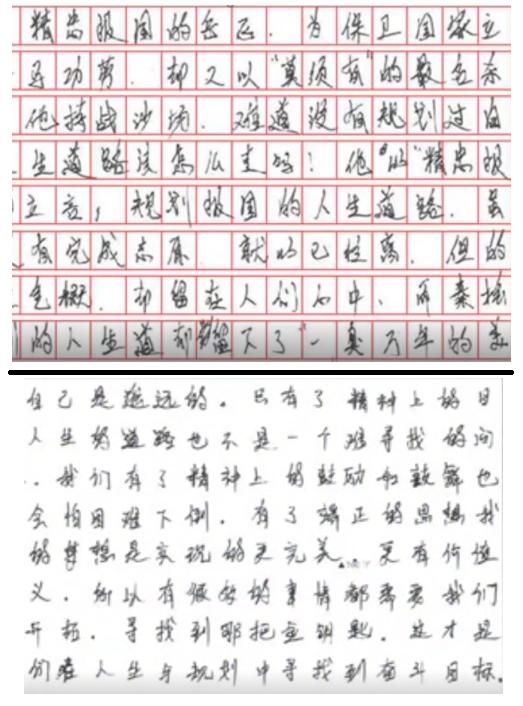 精忠报国的岳飞．为保卫国家立
功劳．却又以“莫须有”的
他 战沙场．难道没有规划过自
生道路该怎么走吗！他以“精忠报
立 ，规划报国的人生道路．虽
有完成志 就 已 离．但的
．却留在人们心中、而秦桧
的人生道却 下了“一臭万年的
自己是遥远的。只有了精神上的目
人生的道路也不是一个难寻找的问
．我们有了精神上的鼓励和鼓舞也
会怕困难下倒．有了端正的思想我
的梦想是实现的更完美．更有价值
义．所以有很好的事情都需要我们
开拓．寻找到那把金钥匙．这才是
们在人生与规划中寻找到奋斗目标.